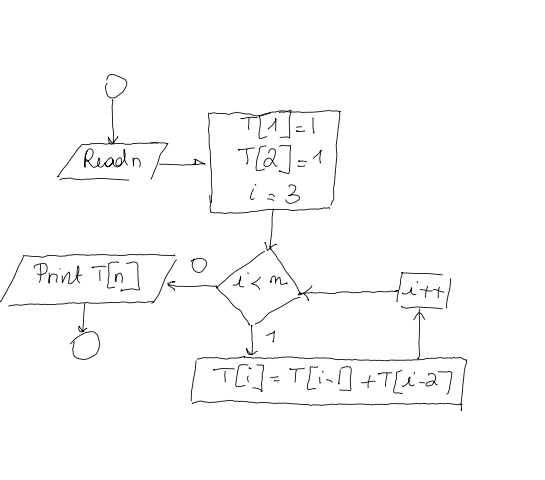 Read n
T[1]=1
T[2]=1
i=3
i<n
0
1
Print T[n]
i++
T[i]=T[i-1]+T[i-2]